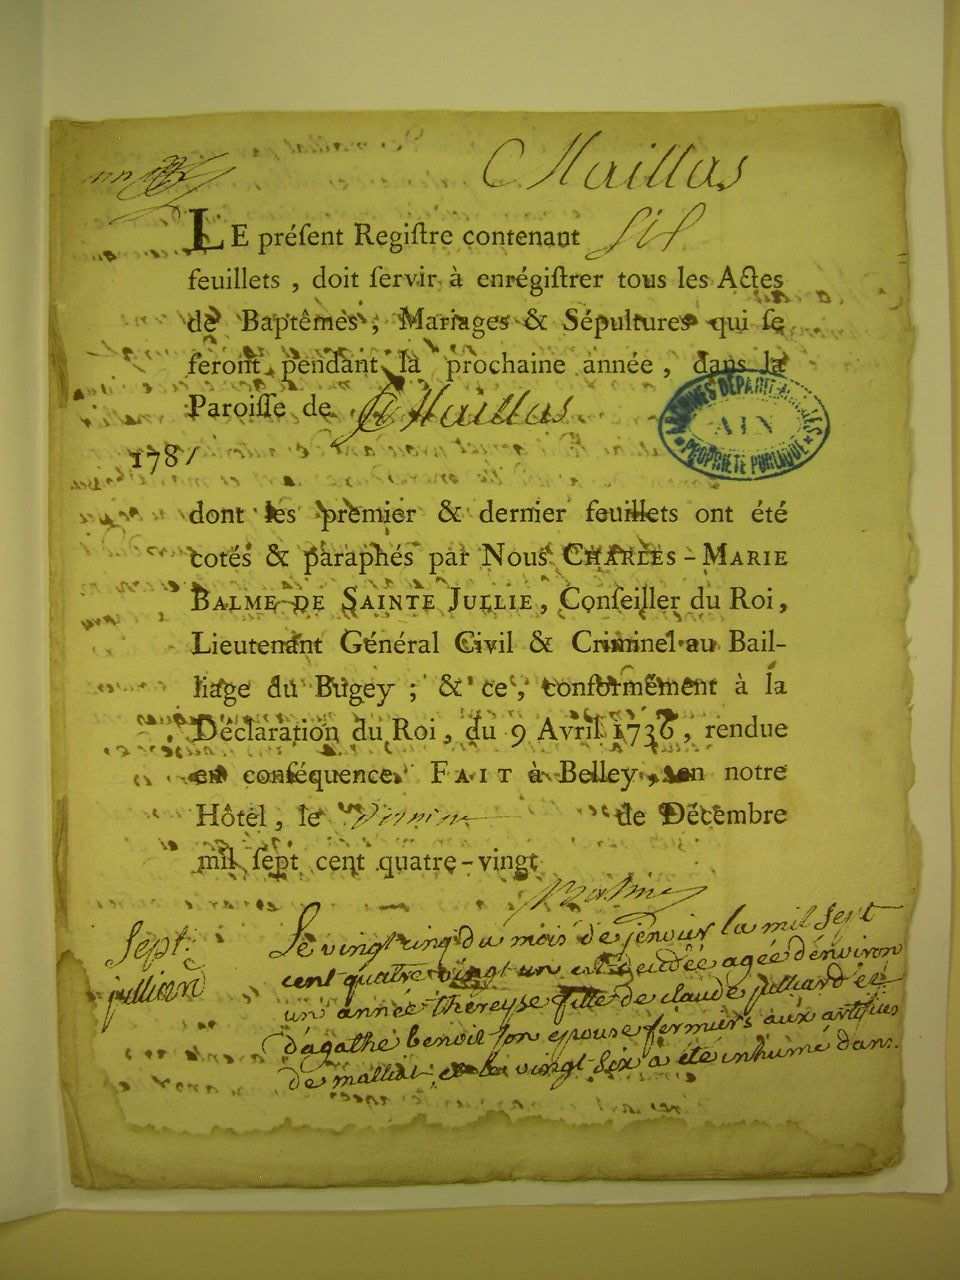 Maillas
LE préſent Regiſtre contenant six
feuillets, doit ſervir à enrégiſtrer tous les Actes
de Baptêmes, Mariages & Sépultures qui ſe
feront pendant la prochaine année, dans la
Paroiſſe de Maillas
1781
ARCHIVES DÉPARTEMENTALES
AIN
PROPRIÉTÉ PUBLIQUE
dont les premier & dernier feuillets ont été
cotés & paraphés par Nous CHARLES-MARIE
BALME DE SAINTE JULLIE, Conſeiller du Roi,
Lieutenant Général Civil & Criminel au Bail-
liage du Bugey ; & ce, conformément à la
Déclaration du Roi, du 9 Avril 1736, rendue
en conſéquence. FAIT à Belley, en notre
Hôtel, le de Décembre
mil ſept cent quatre-vingt
Balme
Sept.
jullierd
Le vingt cinq du mois de jenvier la mil sept
cent quatre vingt un est décédée agée d'énviron
un année théreyse fille de claude julliard et
d'agathe benoit son epouse férmiérs aux artifices
de malliat, et le vingt six a été inhumé dans